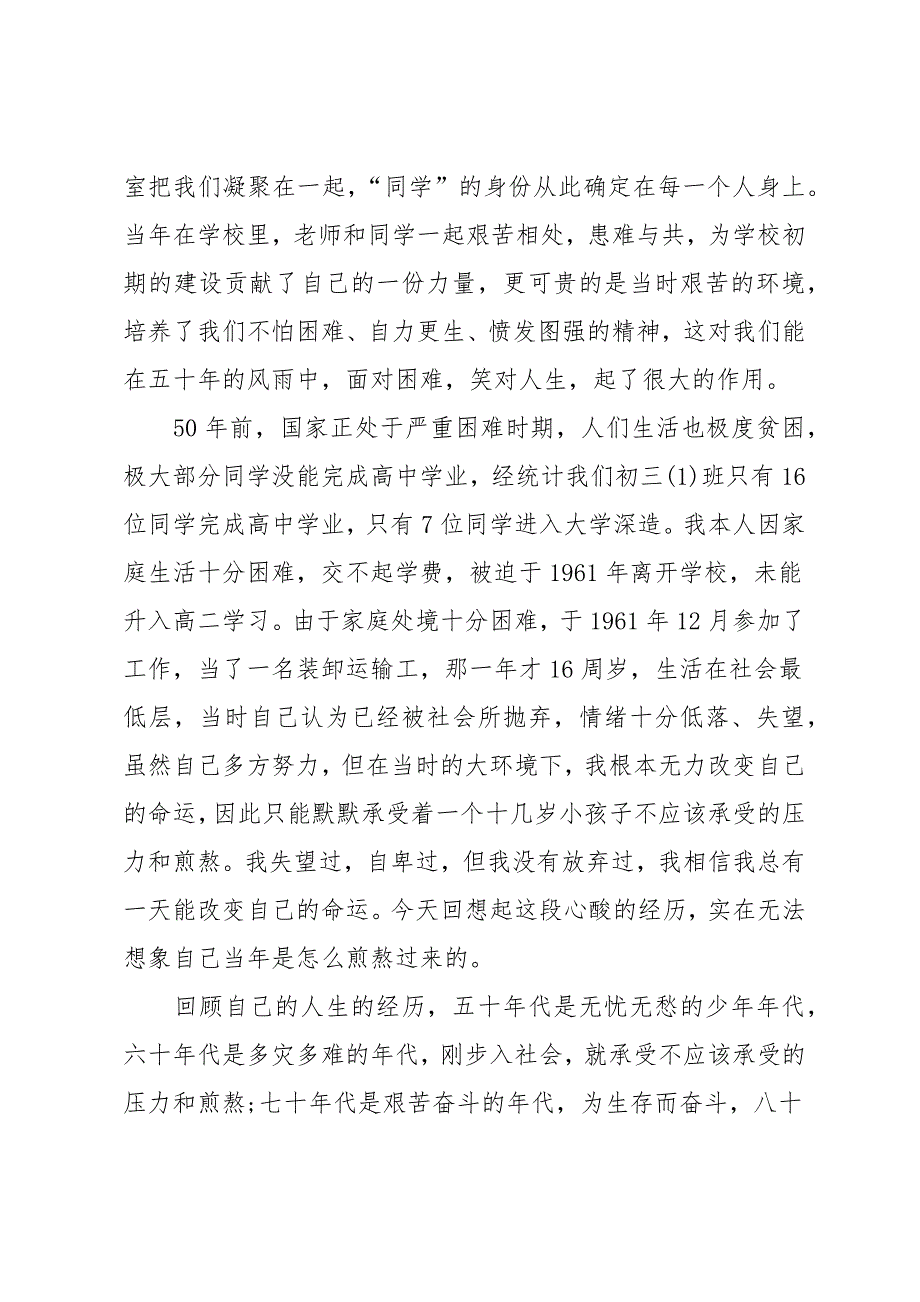 室把我们凝聚在一起，“同学”的身份从此确定在每一个人身上。
当年在学校里，老师和同学一起艰苦相处，患难与共，为学校初
期的建设贡献了自己的一份力量，更可贵的是当时艰苦的环境，
培养了我们不怕困难、自力更生、愤发图强的精神，这对我们能
在五十年的风雨中，面对困难，笑对人生，起了很大的作用。
50 年前，国家正处于严重困难时期，人们生活也极度贫困，
极大部分同学没能完成高中学业，经统计我们初三(1)班只有 16
位同学完成高中学业，只有 7 位同学进入大学深造。我本人因家
庭生活十分困难，交不起学费，被迫于 1961 年离开学校，未能
升入高二学习。由于家庭处境十分困难，于 1961 年 12 月参加了
工作，当了一名装卸运输工，那一年才 16 周岁，生活在社会最
低层，当时自己认为已经被社会所抛弃，情绪十分低落、失望，
虽然自己多方努力，但在当时的大环境下，我根本无力改变自己
的命运，因此只能默默承受着一个十几岁小孩子不应该承受的压
力和煎熬。我失望过，自卑过，但我没有放弃过，我相信我总有
一天能改变自己的命运。今天回想起这段心酸的经历，实在无法
想象自己当年是怎么煎熬过来的。
回顾自己的人生的经历，五十年代是无忧无愁的少年年代，
六十年代是多灾多难的年代，刚步入社会，就承受不应该承受的
压力和煎熬;七十年代是艰苦奋斗的年代，为生存而奋斗，八十